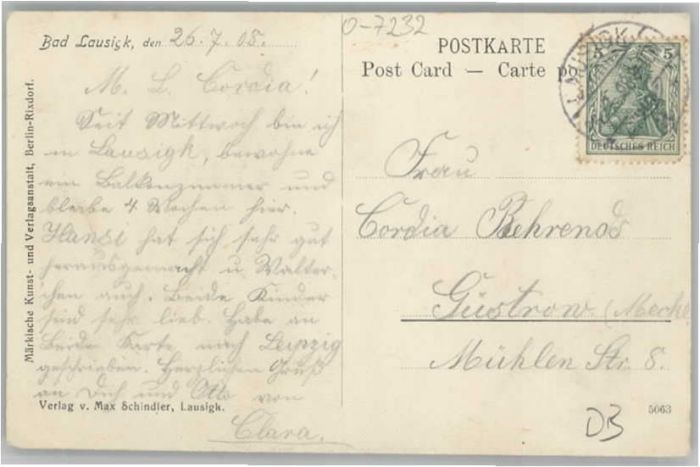 O-7232
Bad Lausigk, den 26.7.08.
POSTKARTE
Post Card — Carte po
LAUSIGK
5
DEUTSCHES REICH
M. L. Cordia!
Seit Mittwoch bin ich
in Lausigk, bewohne
ein Balkonzimmer und
bleibe 4 Wochen hier.
Hansi hat sich sehr gut
herausgemacht u. Walter-
chen auch. Beide Kinder
sind sehr lieb. Habe an
Beide Karte nach Leipzig
geschrieben. Herzlichen Gruß
an Dich und Otto von
Clara.
Frau
Cordia Behrends
Güstrow (Meckl
Mühlen Str. 8.
Märkische Kunst- und Verlagsanstalt, Berlin-Rixdorf.
Verlag v. Max Schindler, Lausigk.
5063
DB